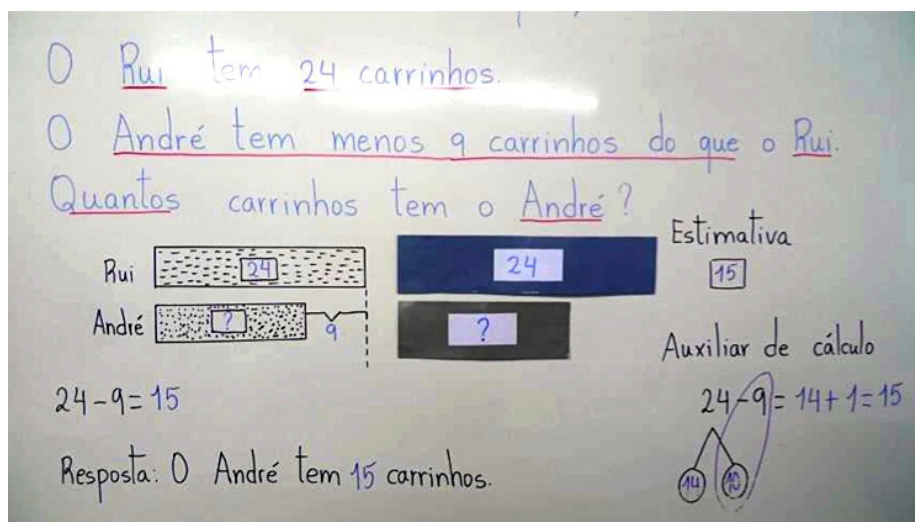 O Rui tem 24 carrinhos.
O André tem menos 9 carrinhos do que o Rui.
Quantos carrinhos tem o André?
Rui 24
André ? 9
24
?
Estimativa
15
24-9=15
Resposta: O André tem 15 carrinhos.
Auxiliar de cálculo
24-9=14+1=15
14 10